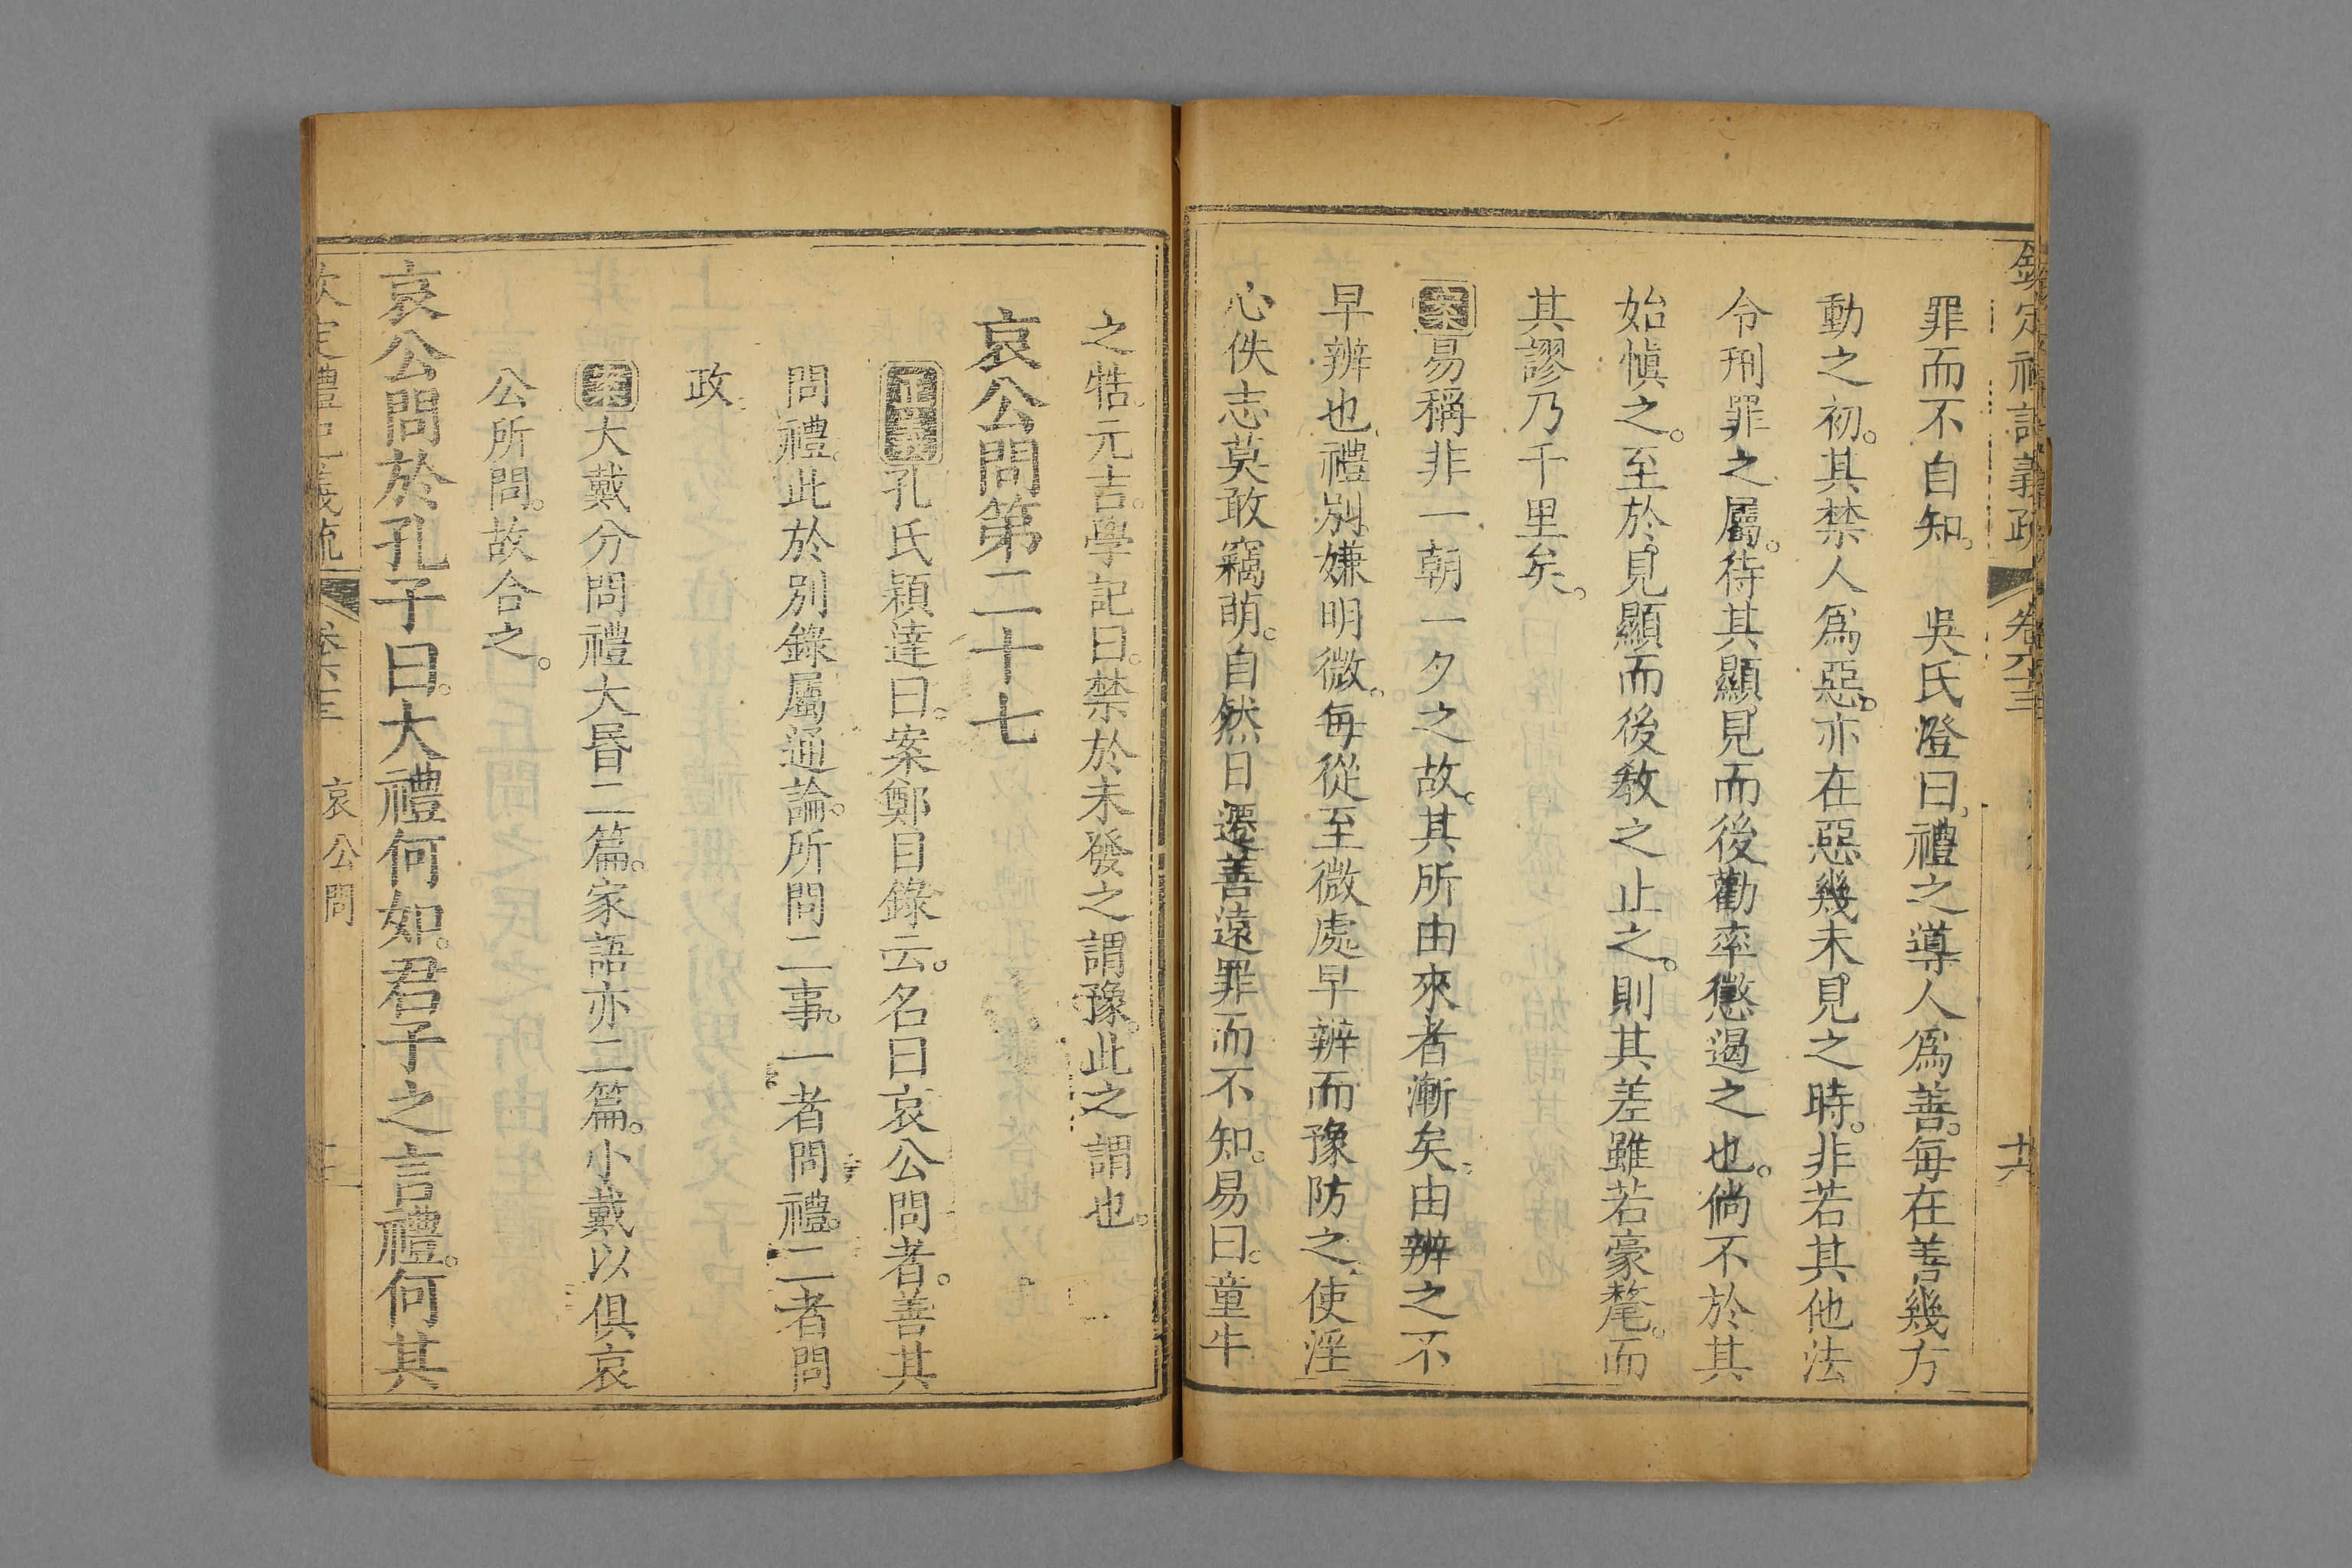 欽定禮記義疏 卷六十三 十六
罪而不自知。 吳氏澄曰。禮之導人爲善。每在善幾方
動之初。其禁人爲惡。亦在惡幾未見之時。非若其他法
令刑罪之屬。待其顯見而後勸率懲遏之也。倘不於其
始愼之。至於見顯而後敎之止之。則其差雖若豪氂。而
其謬乃千里矣。
案易稱非一朝一夕之故。其所由來者漸矣。由辨之不
早辨也。禮別嫌明微。每從至微處早辨而豫防之。使淫
心佚志莫敢竊萌。自然日遷善遠罪而不知。易曰。童牛
之牿。元吉。學記曰。禁於未發之謂豫。此之謂也。
哀公問第二十七
正義孔氏穎達曰。案鄭目錄云。名曰哀公問者。善其
問禮。此於別錄屬通論。所問二事。一者問禮。二者問
政。
案大戴分問禮大昬二篇。家語亦二篇。小戴以俱哀
公所問。故合之。
哀公問於孔子曰。大禮何如。君子之言禮。何其
欽定禮記義疏 卷六十三 哀公問